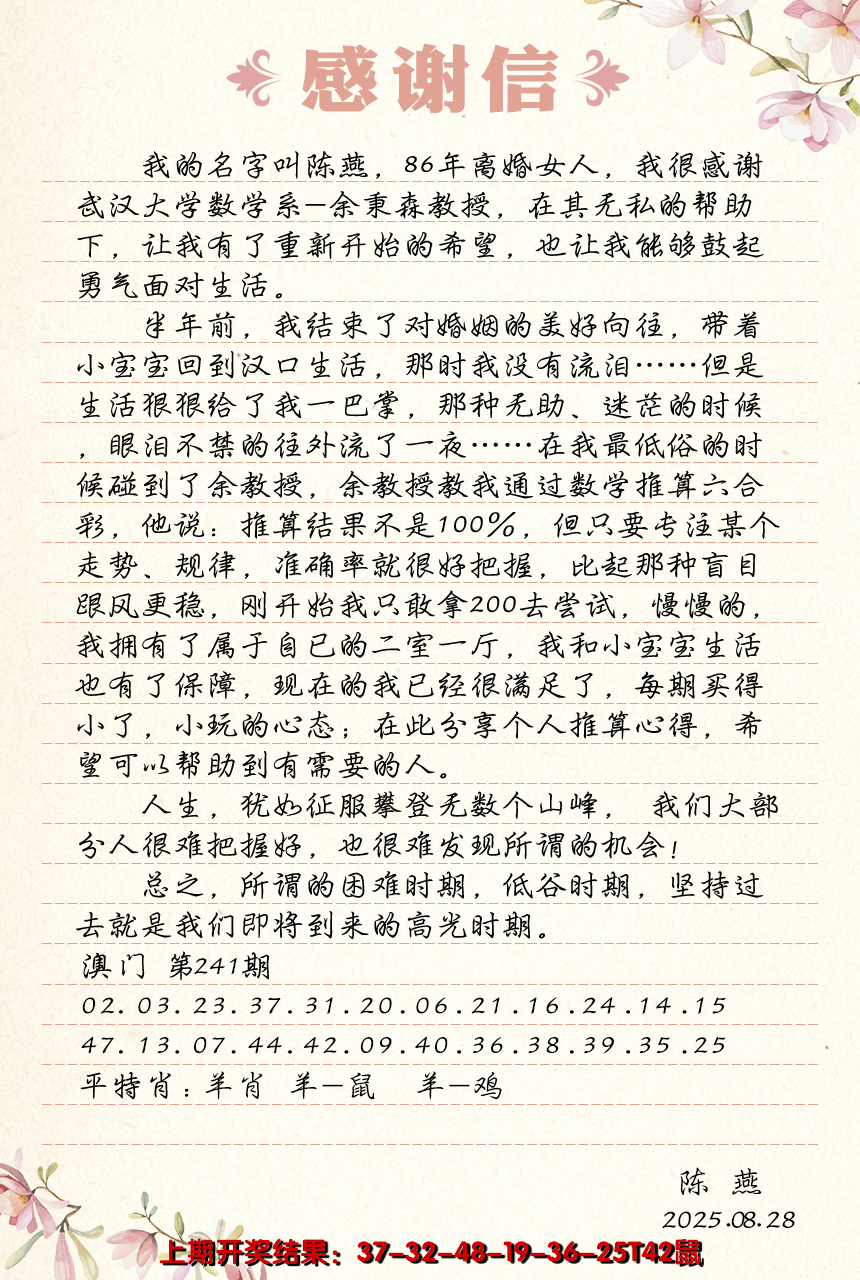 感谢信
我的名字叫陈燕，86年离婚女人，我很感谢
武汉大学数学系—余秉森教授，在其无私的帮助
下，让我有了重新开始的希望，也让我能够鼓起
勇气面对生活。
半年前，我结束了对婚姻的美好向往，带着
小宝宝回到汉口生活，那时我没有流泪……但是
生活狠狠给了我一巴掌，那种无助、迷茫的时候
，眼泪不禁的往外流了一夜……在我最低俗的时
候碰到了余教授，余教授教我通过数学推算六合
彩，他说：推算结果不是100%，但只要专注某个
走势、规律，准确率就很好把握，比起那种盲目
跟风更稳，刚开始我只敢拿200去尝试，慢慢的，
我拥有了属于自已的二室一厅，我和小宝宝生活
也有了保障，现在的我已经很满足了，每期买得
小了，小玩的心态；在此分享个人推算心得，希
望可以帮助到有需要的人。
人生，犹如征服攀登无数个山峰， 我们大部
分人很难把握好，也很难发现所谓的机会！
总之，所谓的困难时期，低谷时期，坚持过
去就是我们即将到来的高光时期。
澳门 第241期
02.03.23.37.31.20.06.21.16.24.14.15
47.13.07.44.42.09.40.36.38.39.35.25
平特肖：羊肖 羊—鼠 羊—鸡
陈 燕
2025.08.28
上期开奖结果：37-32-48-19-36-25T42鼠